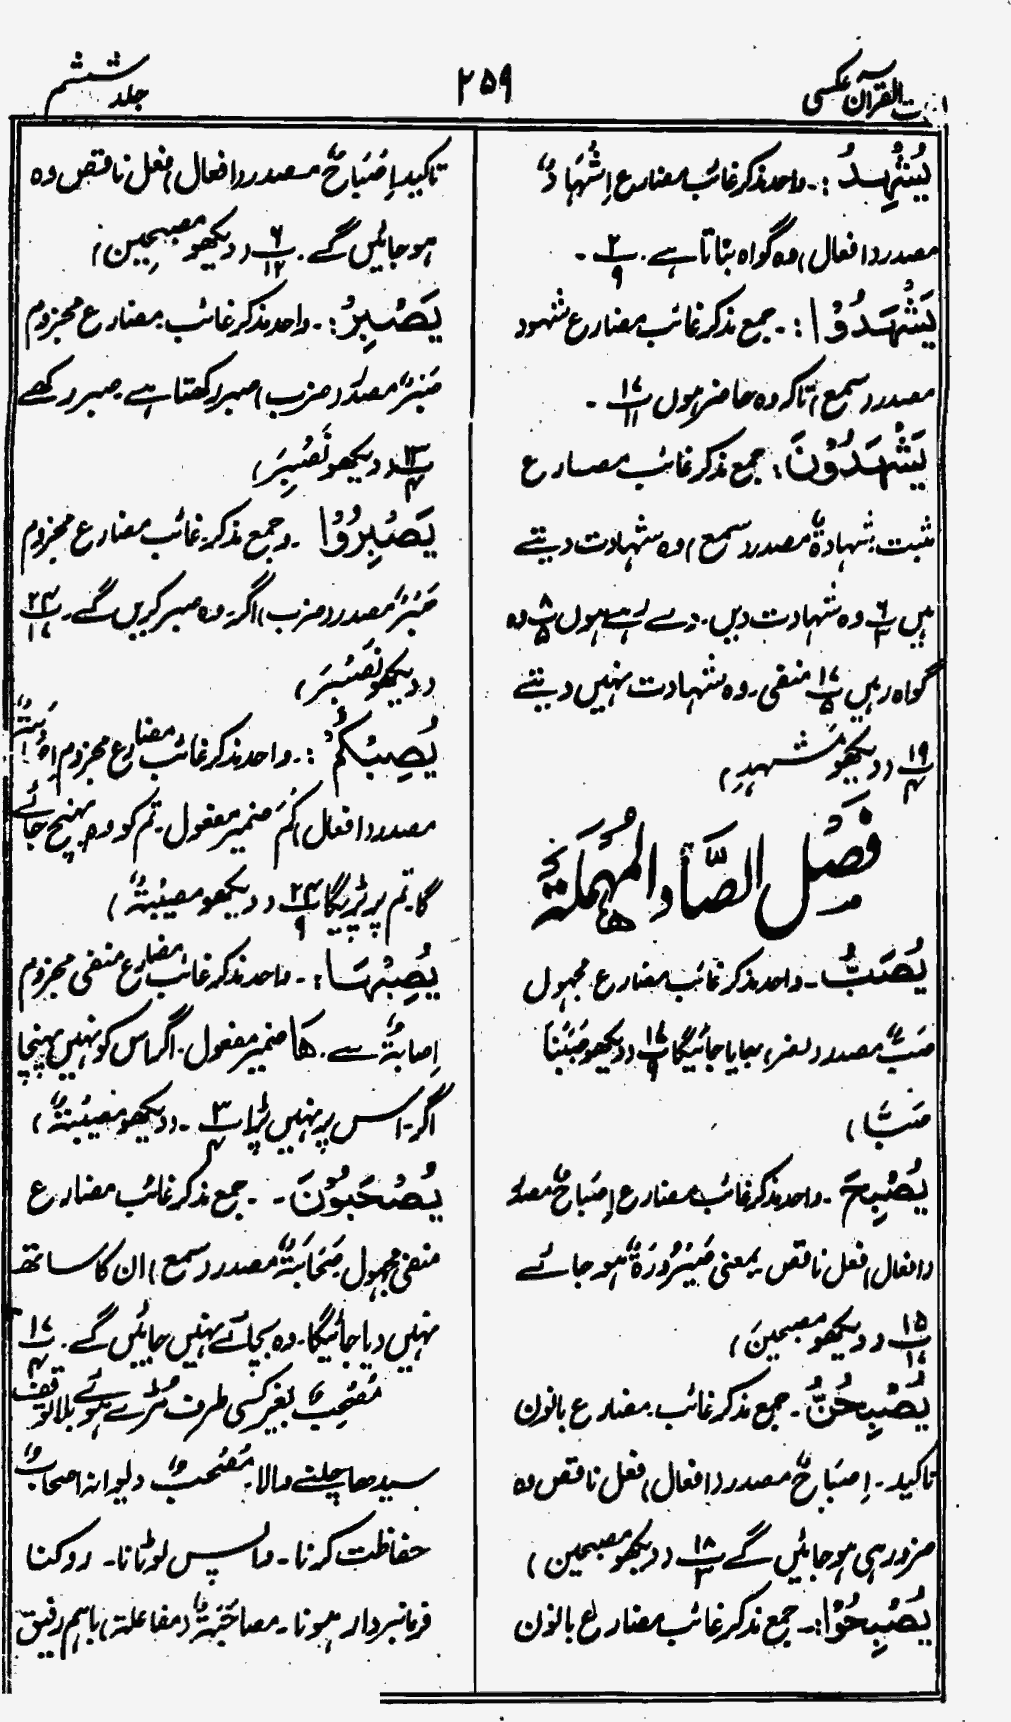 لغات القرآن عکسی
۲۵۹
جلد ششم
یُشْهِدُ :۔ واحد مذکر غائب مضارع اِشْهَادٌ
مصدر (افعال) وہ گواہ بناتا ہے۔ ۲/۹ ۔
یَشْهَدُوْا :۔ جمع مذکر غائب مضارع شہود
مصدر (سمع) تاکہ وہ حاضر ہوں ۱۷/۱۱ ۔
یَشْهَدُوْنَ : جمع مذکر غائب مضارع
مثبت شہادۃٌ مصدر (سمع) وہ شہادت دیتے
ہیں ۶/۳ وہ شہادت دیں۔ دے رہے ہوں ۸/۵ وہ
گواہ رہیں ۱۷/۵ منفی۔ وہ شہادت نہیں دیتے
۱۹/۴ (دیکھو مَشْہَدِ)
فَصْلُ الصَّادِ الْمُهْمَلَةِ
یُصَبُّ ۔ واحد مذکر غائب مضارع مجہول
صَبٌّ مصدر (نصر) بہایا جائیگا ۱۷/۹ (دیکھو صَبَبْنَا
صَبًّا)
یُصْبِحَ ۔ واحد مذکر غائب مضارع اِصْبَاحٌ مصدر
(افعال) فعل ناقص بمعنی صَیْرُوْرَةٌ ہو جائے
۱۵/۱۷ (دیکھو مصبحینَ)
یُصْبِحُنَّ ۔ جمع مذکر غائب۔ مضارع بانون
تاکید۔ اِصْبَاحٌ مصدر (افعال) فعل ناقص وہ
ضرور ہی ہو جائیں گے ۱۸/۳ (دیکھو مصبحین)
یُصْبِحُوْا :۔ جمع مذکر غائب مضارع بانون
تاکید اِصْبَاحٌ مصدر (افعال) فعل ناقص وہ
ہو جائیں گے۔ ۶/۱۲ (دیکھو مصبحین)
یَصْبِرُ :۔ واحد مذکر غائب۔ مضارع مجزوم
صَبْرٌ مصدر (ضرب) صبر رکھتا ہے۔ صبر رکھے
۱۳/۴ (دیکھو نَصْبِرَ)
یَصْبِرُوْا ۔ جمع مذکر غائب مضارع مجزوم
صَبْرٌ مصدر (ضرب) اگر وہ صبر کریں گے۔ ۲۴/۱۷
(دیکھو نَصْبِرَ)
یُصِبْکُمْ :۔ واحد مذکر غائب مضارع مجزوم اِصَابَةٌ
مصدر (افعال) کُمْ ضمیر مفعول۔ تم کو وہ پہنچ جائے
گا۔ تم پر پڑیگا ۲۴/۹ (دیکھو مصیبَةٌ)
یُصِبْهَا :۔ واحد مذکر غائب مضارع منفی مجزوم
اِصابةٌ سے۔ ھَا ضمیر مفعول۔ اگر اس کو نہیں پہنچا
اگر۔ اس پر نہیں پڑا ۳/۴ ۔ (دیکھو مصیبَةٌ)
یُصْحَبُوْنَ ۔ جمع مذکر غائب مضارع
منفی مجہول صَحَابَةٌ مصدر (سمع) ان کا ساتھ
نہیں دیا جائیگا۔ وہ بچائے نہیں جائیں گے۔ ۱۷/۴
مُصْحِبٌ بغیر کسی طرف مڑے ہوئے بلا توقف
سیدھا چلنے والا۔ مُصْحَبٌ دیوانہ اصحابٌ
حفاظت کرنا۔ واپس لوٹانا۔ روکنا
فرمانبردار ہونا۔ مصاحَبَةٌ (مفاعلة) باہم رفیق